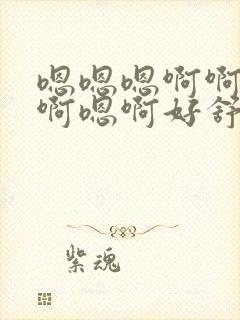 嗯嗯嗯啊啊
啊嗯啊好舒
紫魂